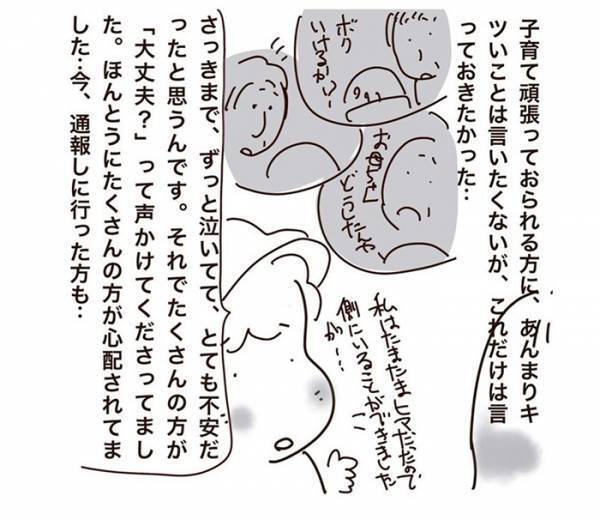 子育て頑張っておられる方に、あんまりキ
ツいことは言いたくないが、これだけは言
っておきたかった…
ボク
いけるか!?
お母さん
どうしたんや
私はたまたまヒマだたので
側にいることができました
が…
さっきまで、ずっと泣いてて、とても不安だ
ったと思うんです。それでたくさんの方が
「大丈夫？」って声かけてくださってまし
た。ほんとうにたくさんの方が心配されてま
した…今、通報しに行った方も…